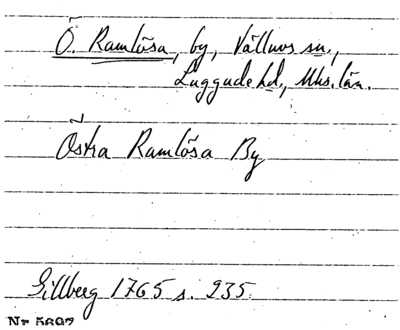 Ö. Ramlösa, by, Välluvs sn.,
Luggude hd., Mhs. län.
Östra Ramlösa By
Gillberg 1765 s. 235.
Nr 5697